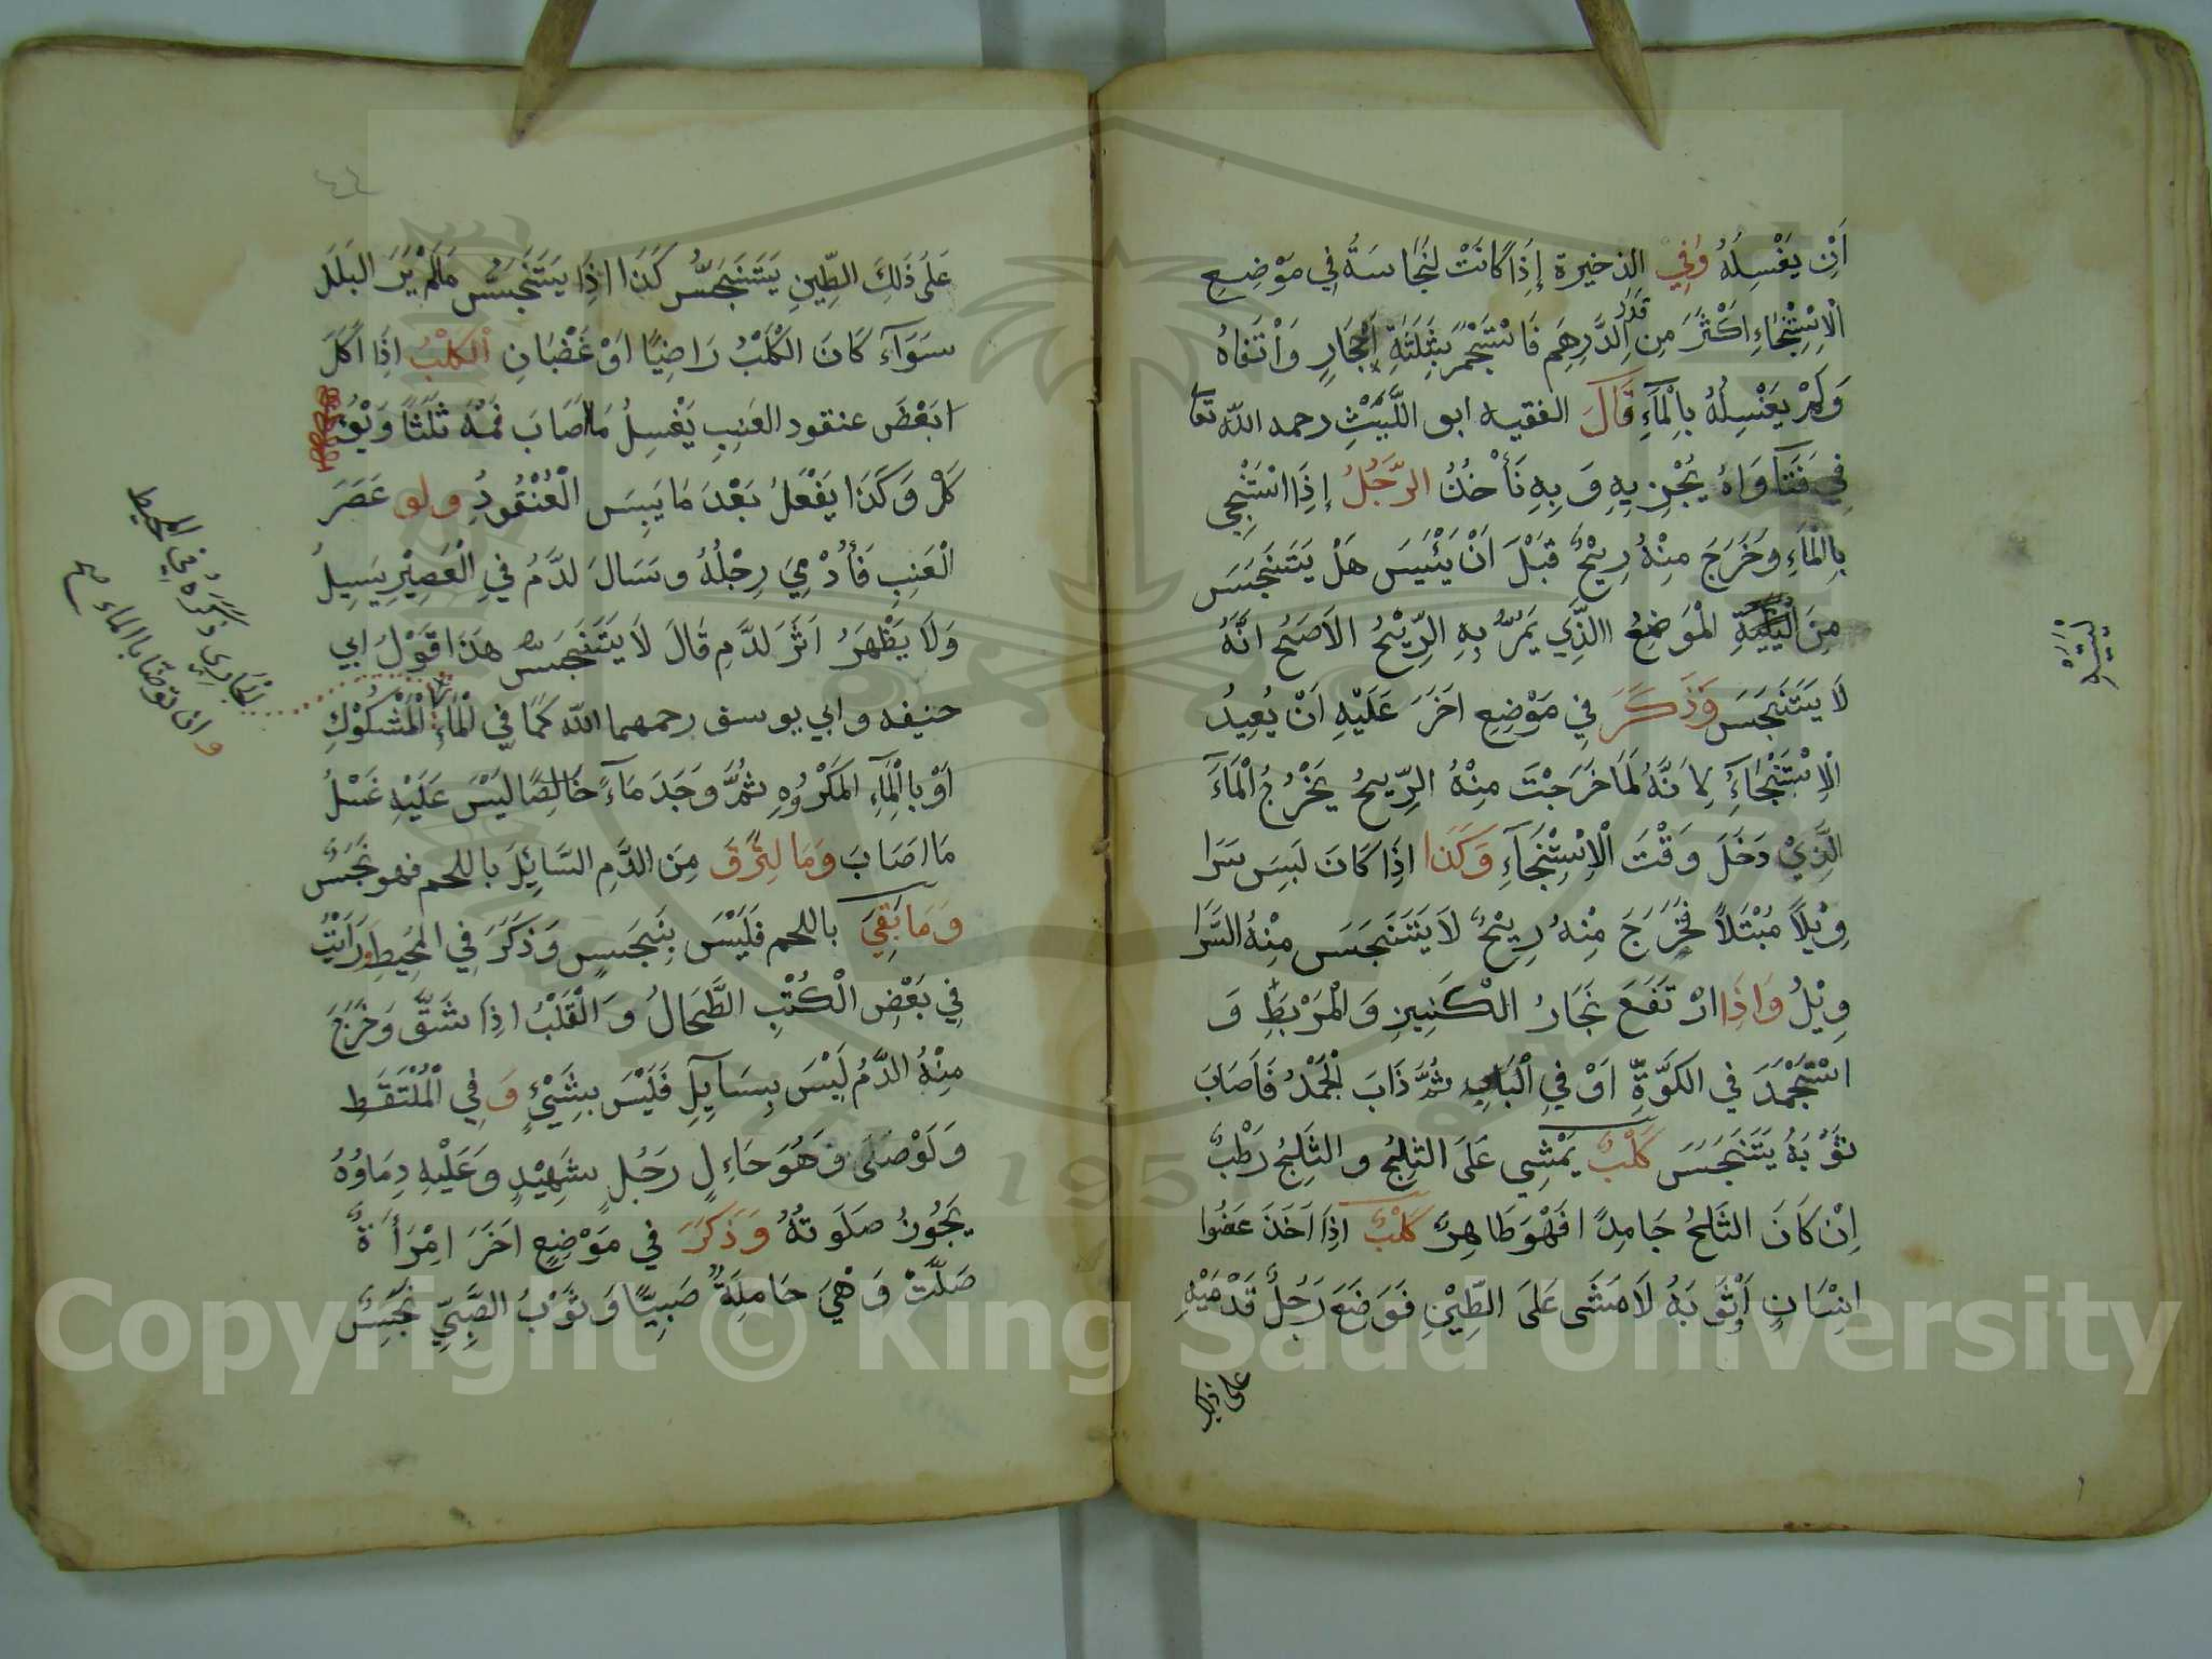 اَنْ يَغْسِلَهُ وَفِي الذخيرة إِذَا كَانَتْ لنَجَاسَةُ فِي مَوْضِعِ
الْاِسْتِنْجَاءِ اَكْثَرَ مِنْ قَدَرِ الدِّرهَمِ فَاسْتَجْمَرَ بِثَلَثَةِ اَحْجَارٍ وَاَنْقَاهُ
وَلَمْ يَغْسِلْهُ بِالْمَآءِ قَالَ الفقيه ابو اللَّيْثِ رحمه الله تعا
فِي فَتَاوَاهُ يُجْزِيهِ وَبِهِ نَأْخُذُ الرَّجُلُ إِذَا اسْتَنْجِي
بِالْمَاءِ وَخَرَجَ مِنْهُ رِيْحٌ قَبْلَ اَنْ يَئْيَسَ هَلْ يَتَنَجَّسَ
مِنَ الْيَلِيَّةِ الْمَوضِعُ الَّذِي يَمُرُّ بِهِ الرِّيْحُ الاَصَحُ اَنَّهُ
لَا يَتَنَجَّسَ وَذَكَرَ فِي مَوْضِعِ اخَرَ عَلَيْهِ اَنْ يُعِيدُ
الْاِسْتِنْجَاءَ لِاَنَّهُ لَمَا خَرَجْتَ مِنْهُ الرِّيحُ يَخْرُجُ الْمَآءَ
الَّذِيْ دَخَلَ وَقْتَ الْاِسْتِنْجَآءِ وَكَذَا اِذَا كَانَ لَبِسَ سَرَا
وِيْلاً مُبْتَلاً فَخَرَجَ مِنْهُ رِيْحٌ لاَ يَتَنَجَّسَ مِنْهُ السَّرَا
وِيْلُ وَاذَا ارْتَفَعَ نَجَارُ الْكَنِيزِ وَالْمَرْبَطِ وَ
اسْتَجْمَدَ فِي الكَوَّةِ اَوْ فِي الْبَابِ ثُمَّ ذَابَ الْجَمْدُ فَاَصَابَ
ثَوْبَهُ يَتَنَجَّسَ كَلْبٌ يَمْشِي عَلَى الثَلْجِ و الثَلْجُ رَطْبٌ
اِنْ كَانَ الثَلْجُ جَامِدًا فَهْوَ طَاهِرٌ كَلْبٌ اِذَا اَخَذَ عَضُوا
اِنْسَانٍ اَوْثَوْبَهُ لَا مَشَى عَلَى الطِّيْنِ فَوَضَعَ رَجُلٌ قَدْمَيْهِ
على ذلك
عَلَى ذَلِكَ الطِّينِ يَتَنَجَّسُ كَذَا اذِا يَتَنَجَّسُ مَالَمْ يَرَ البَلَلَ
سَوَآءَ كَانَ الْكَلْبُ رَاضِيًا اَوْ غَضْبَانِ اَلْكَلْبُ اذَا اَكَلَ
ابَعْضَ عنقود العَنِبِ يَغْسِلُ مَا اصَابَ فَمُهُ ثَلَثًا وَيُؤ
كَلْ وَكَذَا يَفْعَلُ بَعْدَ مَا يَبِسَ الْعُنْقُودُ ولو عَصَرَ
الْعَنِبَ فَأُدْمِيَ رِجْلُهُ وسَالَ لدَّمُ فِي الْعَصِيْرِ يَسِيلُ
وَلَا يَظْهَرُ اَثَرَ لدَّمِ قَالَ لَا يَتَنَجَّسُ هَذَا قَوْلُ ابي
حنيفه وابي يوسف رحمهما الله كَمَا فِي الْمَاءِ الْمَشْكُوْكِ
اَوْ بِالْمَآءِ الْمَكْرُوهِ ثُمَّ وَجَدَ مَآءً خَالِصًا لَيْسَ عَلَيْهِ غَسْلُ
مَا اصَابَ وَمَا لِزَقَ مِنَ الدَّمِ السَّايِلَ باللحم فهو نَجَسٌ
وَمَا بَقِيَ باللحم فَلَيْسَ بِنَجَسٍ وَذَكَرَ فِي الْمُحِيطِ وَرَاَيْتُ
فِي بَعْضِ الْكُتُبِ الطَّحَالُ وَالْقَلْبُ اذِا شَقَّ وَخَرَجَ
مِنْهُ الدَّمُ لَيْسَ بِسَآيِلٍ فَلَيْسَ بِشَيْءٍ وَفِي الْمُلْتَقَطِ
وَلَوْ صَلَى وَهُوَ حَاءِلٍ رَجُلٍ شَهِيْدٍ وَعَلَيْهِ دِمَاوُهُ
يَجُوزُ صَلَوتُهُ وَذَكَرَ فِي مَوْضِعٍ اخَرَ امْرَأَةٌ
صَلَّتْ وَهْيَ حَامِلَةٌ صَبِيًّا وَثَوْبُ الصَّبِيِّ نَجَسٌ
الجاري ذكره في المحيط
وان توضا بالماء صح